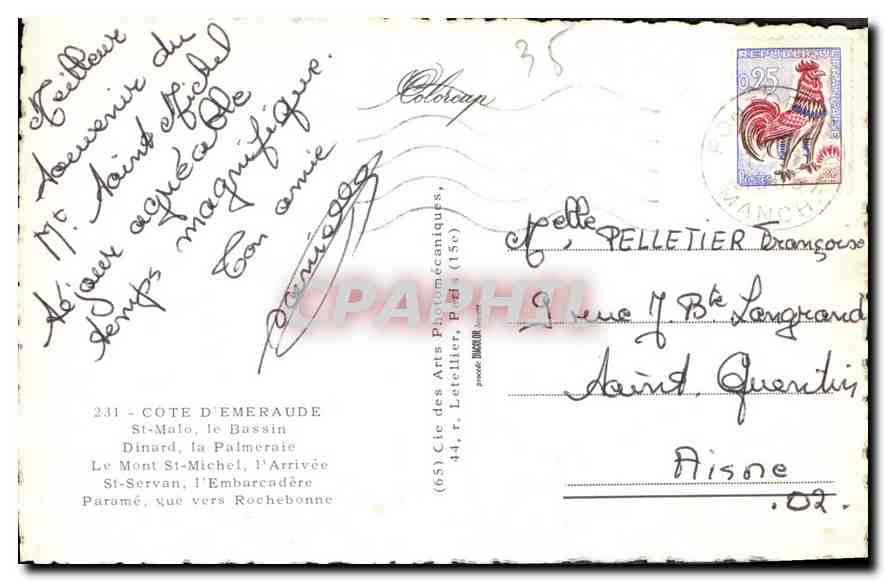 Meilleur
souvenir du
Mt Saint Michel
séjour agréable
temps magnifique.
Ton amie
35
Colorcap
REPUBLIQUE FRANCAISE
0,25
Postes
MANCHE
Melle PELLETIER Françoise
9 rue J. Bte Langrand
Saint. Quentin
Aisne
.02.
CPAPHIL
231 - COTE D'EMERAUDE
St-Malo, le Bassin
Dinard, la Palmeraie
Le Mont St-Michel, l'Arrivée
St-Servan, l'Embarcadère
Paramé, vue vers Rochebonne
(65) Cie des Arts Photomécaniques,
44, r. Letellier, Paris (15e)
procédé DIACOLOR